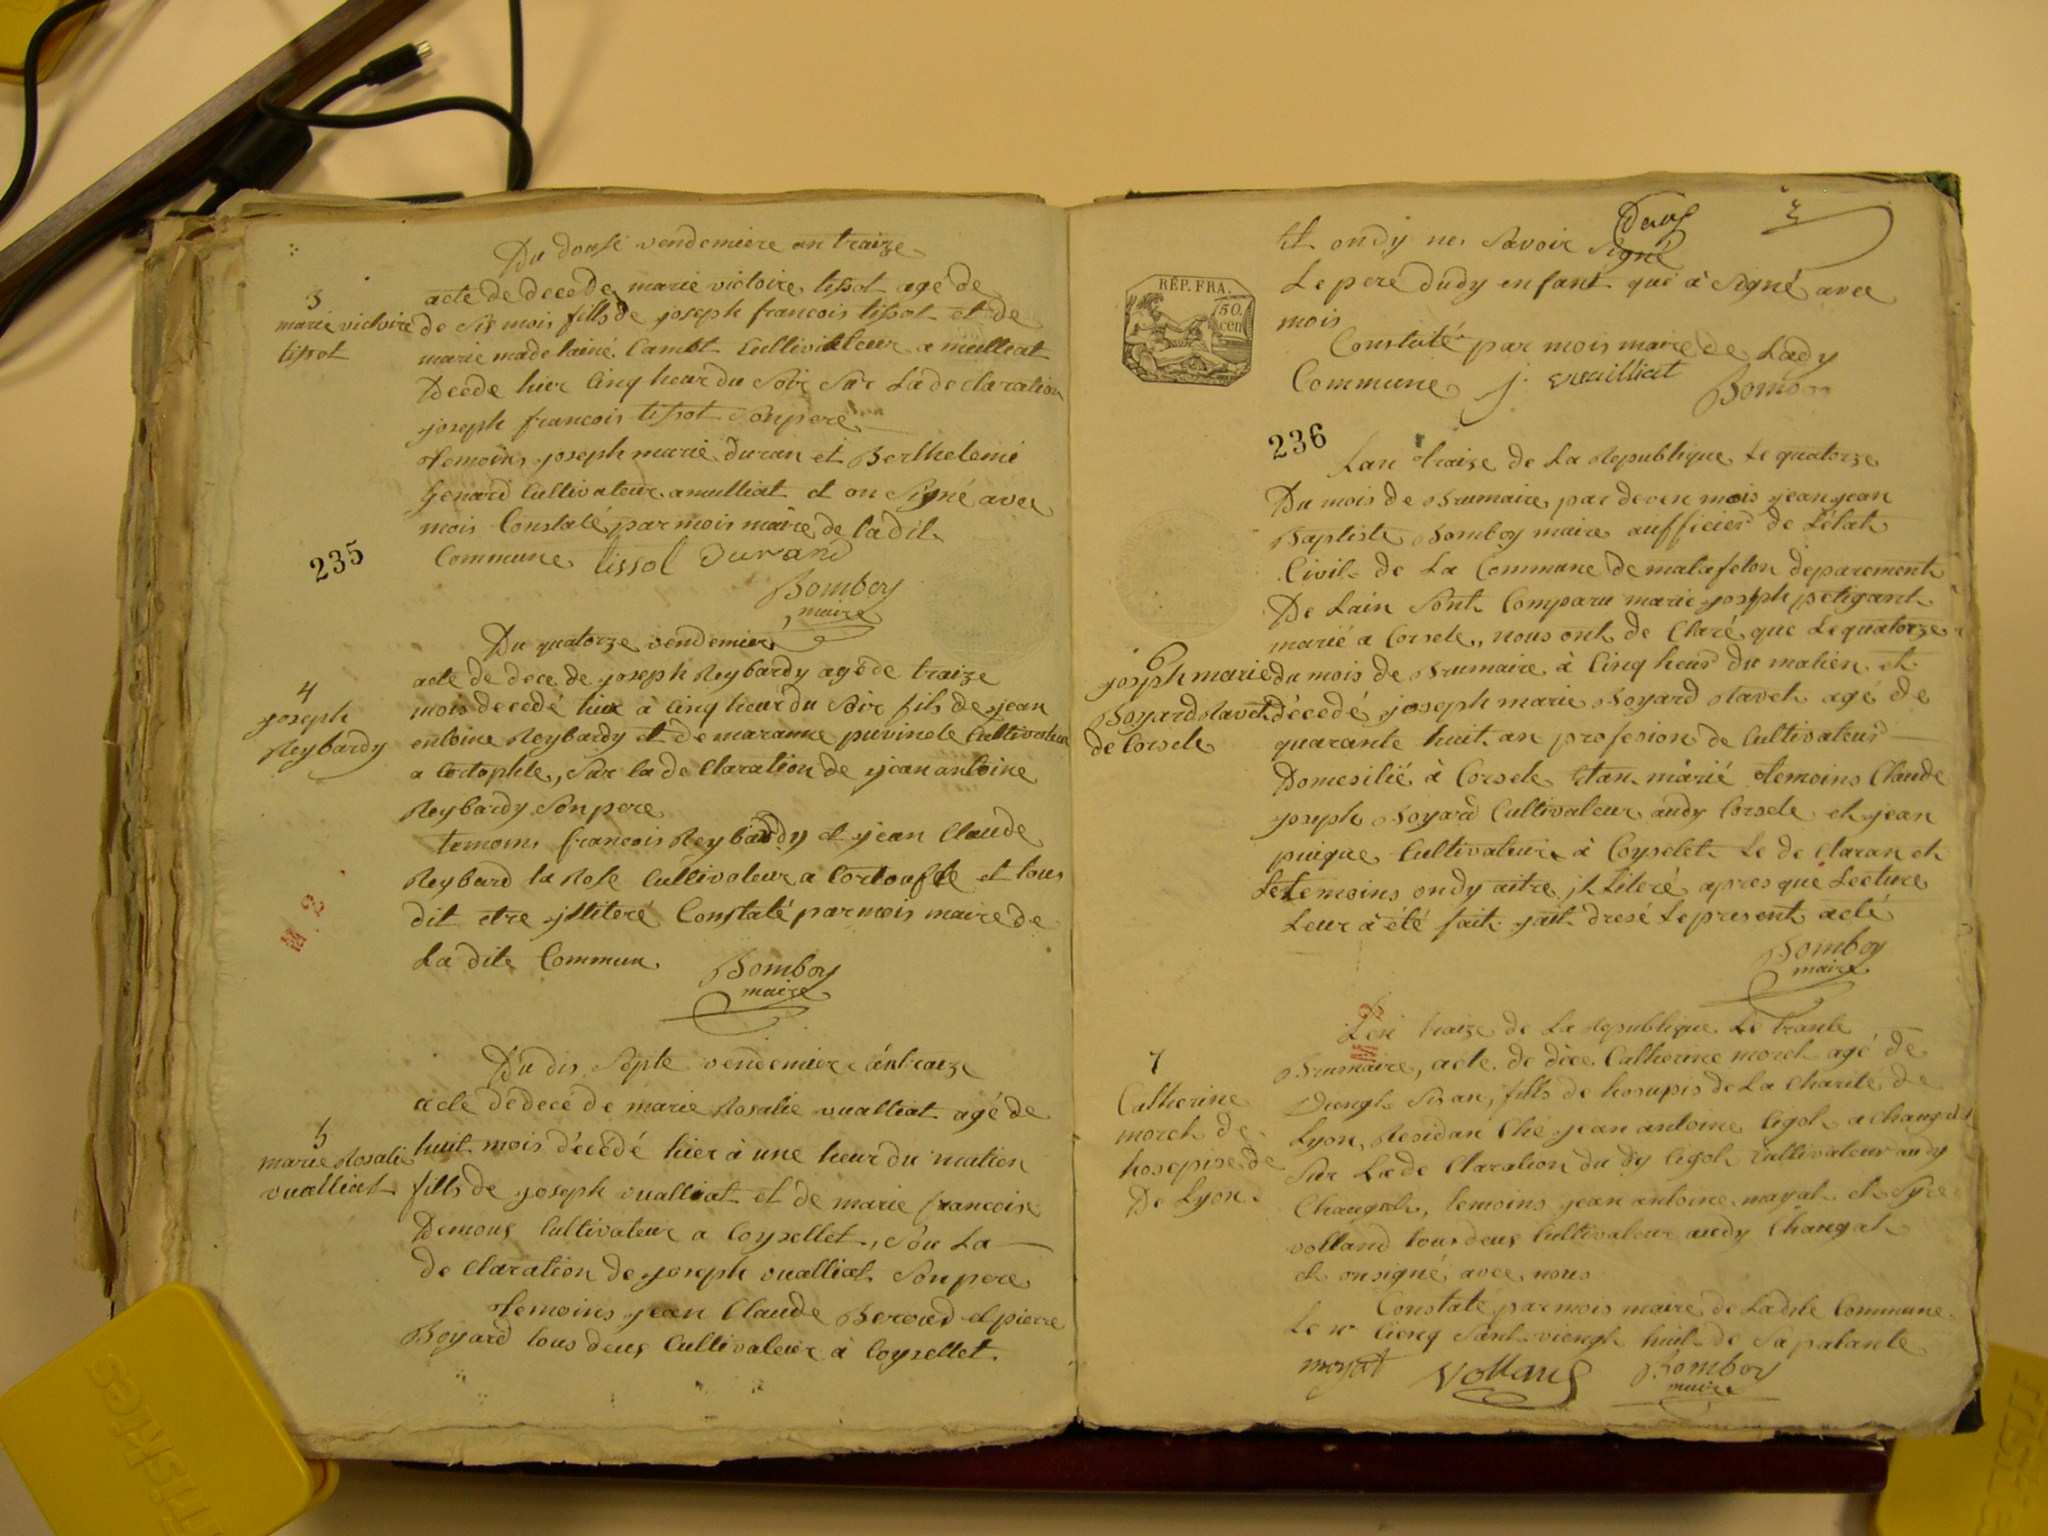 Du douse vendemiere an traize
3
marie victoire
tissot
acte de decede marie victoire tissot agé de
de six mois fills de joseph francois tissot et de
marie madelainé Camet Cultivateur a miulliat
Décéde hier Cinq heur du Soir Sur La declaration
joseph francois tissot Son pere
temoins joseph marie duran et Berthelemi
Genard Cultivateur amulliat et on Signé avec
mois Constaté par mois maire de ladit
Commune tissot Durand
235
Bomboy
maire
Du quatorze vendemier
4
joseph
Reybardy
acte de dece de joseph Reybardy agé de traize
mois decedé hier à Cinq heur du Soir fils de jean
entoine Reybardy et de maranne puvinele Cultivateur
a Cortophle, Sur la de Claration de jean antoine
Reybardy Son pere
temoins francois Reybardy et jean Claude
Reybard la Rose Cultivateur a Cortoufle et tous
dit etre jlliteré Constaté par mois maire de
La dite Commun
Bomboy
maire
Du dis Septe vendemiere ant raize
5
marie Rosalie
vualliat
acte de decé de marie Rosalie vualliat agé de
huit mois décédé hier à une heur du matien
fills de joseph vualliat et de marie francoise
Demous Cultivateur a Coysellet, Sou La
de Claration de joseph vualliat Son pere
temoins jean Claude Beroud et pierre
Boyard tous deus Cultivateur à Coysellet
2
Deus
et ondy nes Savoir Signé
Le pere dudy enfant qui à Signé avec
mois
Constaté par mois maire de Lady
Commune j. vuailliat
Bomboy
RÉP. FRA.
50
cen
236
Lan traize de La Republique Le quatorze
Du mois de Brumaire par deven mois jean jean
Baptiste Bomboy maire aufficier de Létat
Civil de La Commune de malafeton deparement
De Lain Sont Comparu marie joseph petigant
marié a Corsele, nous ont de Claré que Le quatorze
6
joseph marie
Boyard Ravet
de Corsele
du mois de Brumaire à Cinq heur du matien et
décédé joseph marie Boyard Ravet agé de
quarante huit an profesion de Cultivateur
Domesilié à Corsele Etan màrié temoins Claude
joseph Boyard Cultivateur audy Corsele et jean
puique Cultivateur à Coyselet Le de Claran et
Le temoins ondy aitre jl Literé apres que Lecture
Leur à été fait jait dresé Le present acté
Bomboy
maire
Len traize de La Republique Le trante
7
Catherine
morel de
hosepise de
De Lyon
Brumaire, acte de déce Catherine morel agé de
Diengt Sizan, fills de hosupis de La Charité de
Lyon, Residan Ché jean antoine ligol a Changal
Sur La de Claration du dy ligol Cultivateur audy
Changal, temoins jean antoine mayat et Syre
volland tous deus Cultivateur audy Changal
et on signé avec nous
Constaté par mois maire de Ladite Commune
Le n° Cienq Sant viengt huit de Sa patante
mayat Volland Bomboy
maire